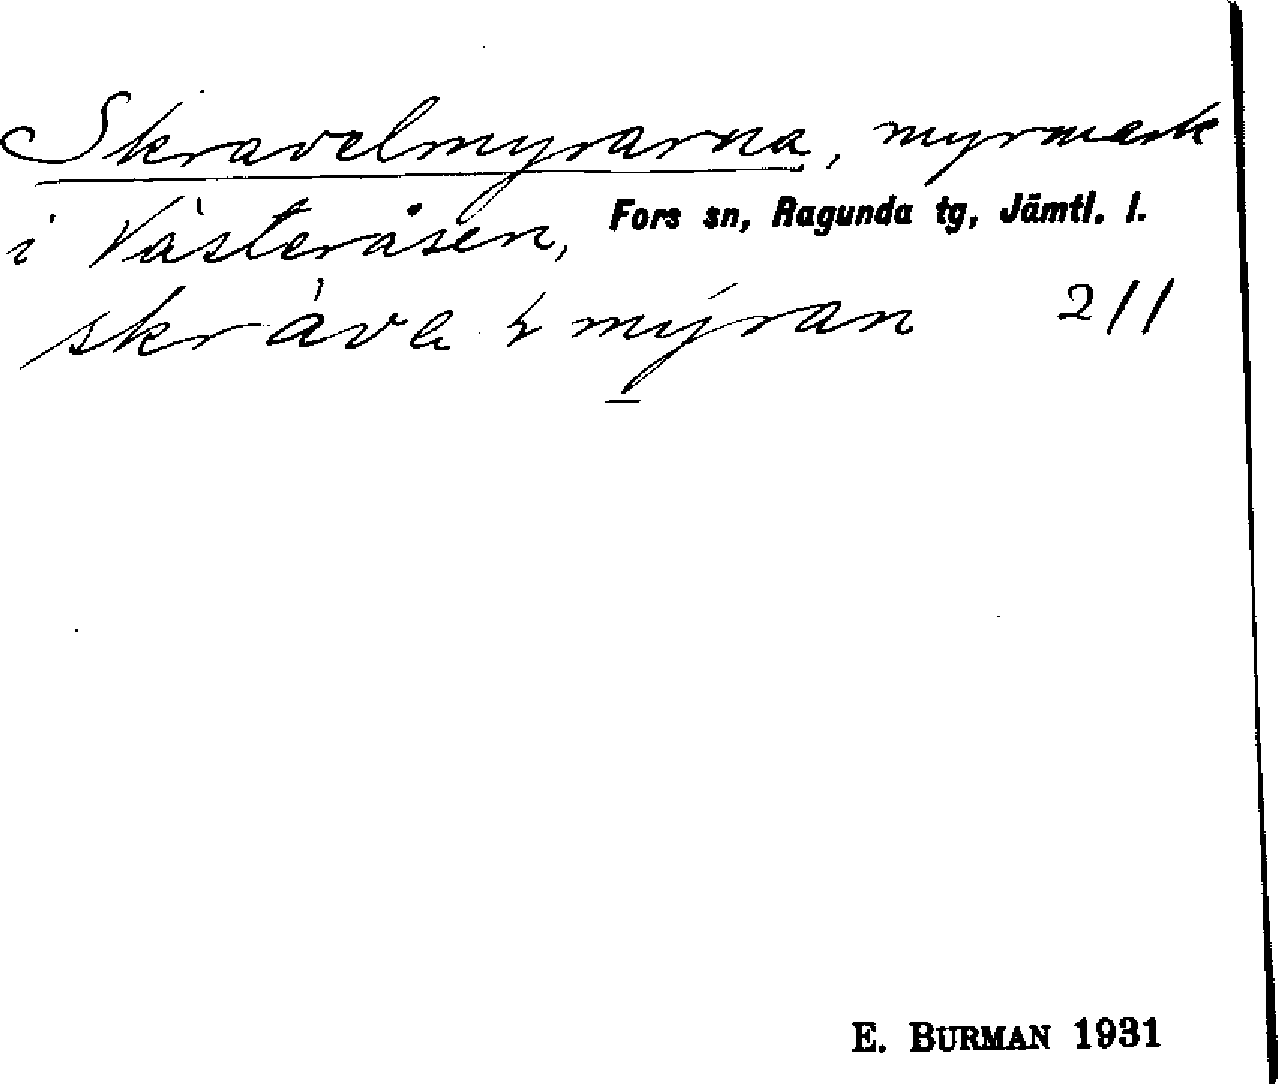 Skravelmyrarna, myrmark
i Västeråsen, Fors sn, Ragunda tg, Jämtl. l.
myran 2/1
E. BURMAN 1931